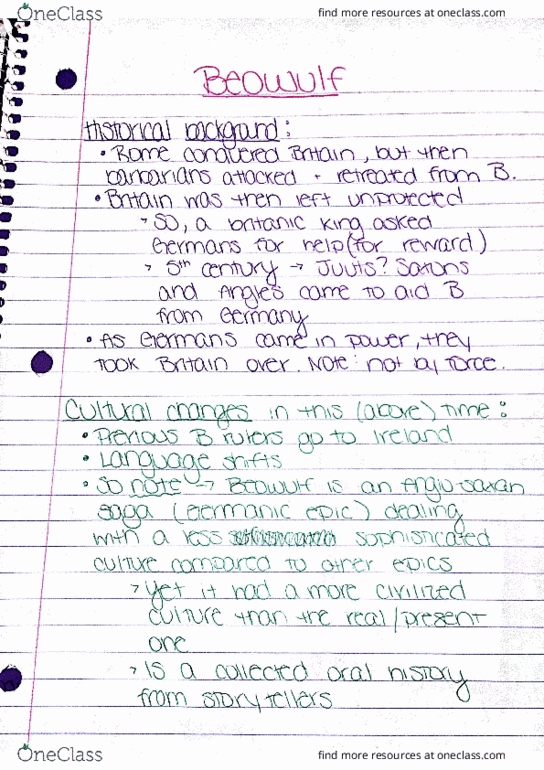 OneClass
find more resources at oneclass.com
Beowulf
Historical backgrund:
• Rome conquered Britain, but then
barbarians attacked + retreated from B.
• Britain was then left unprotected
> so, a britanic king asked
Germans for help (for reward)
> 5th century → Juuts? Saxons
and Angles came to aid B
from Germany
• As Germans came in power, they
took Britain over. Note: not by force.
Cultural changes in this (above) time:
• Previous B rulers go to Ireland
• Language shifts
• So note → Beowulf is an Anglo-saxan
saga (Germanic epic) dealing
with a less sophisticated
culture compared to other epics
> Yet it had a more civilized
culture than the real/present
one
> Is a collected oral history
from storytellers
OneClass
find more resources at oneclass.com